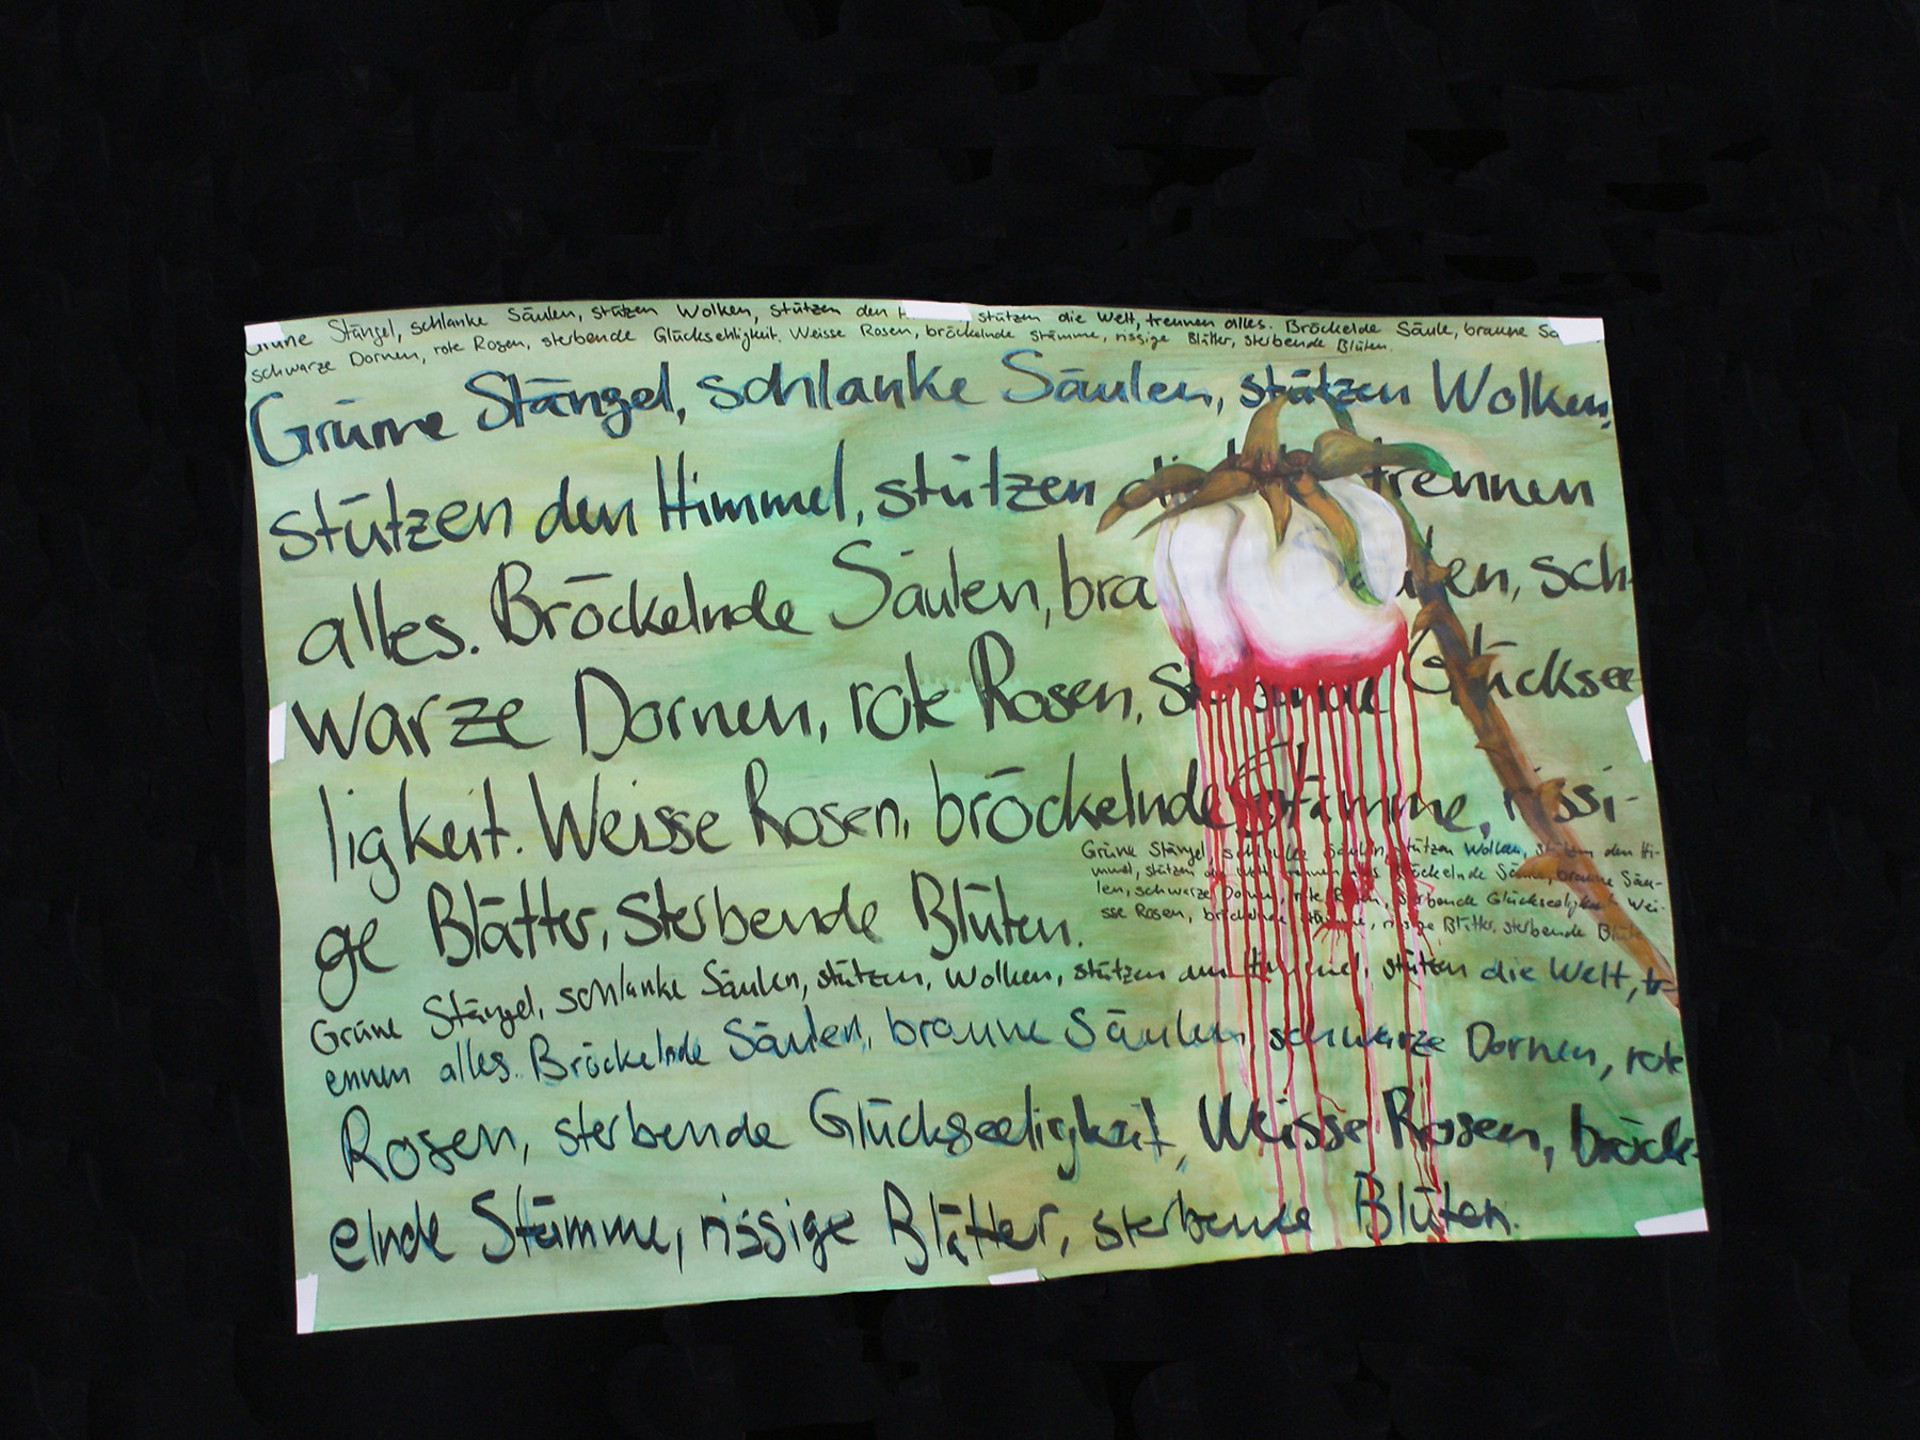 Grüne Stängel, schlanke Säulen, stützen Wolken, stützen den stützen die Welt, trennen alles. Bröckelde Säule, braune
schwarze Dornen, rote Rosen, sterbende Glücksehligkeit. Weisse Rosen, bröckelnde Stämme, rissige Blätter, sterbende Blüten.
Grüne Stängel, schlanke Säulen, stützen Wolken,
stützen den Himmel, stützen die trennen
alles. Bröckelnde Säulen, bra ulen, sch-
warze Dornen, rote Rosen, sterbende Glücksee
ligkeit. Weisse Rosen, bröckelnde Stämme, rissi-
ge Blätter, sterbende Blüten.
Grüne Stängel, schlanke Säulen, stützen Wolken, stützen den Hi-
mmel, stützen die Welt, trennen alles Bröckelnde Säulen, braune Säu-
len, schwarze Dornen, rote Rosen, sterbende Glückseeligkeit Wei-
sse Rosen, bröckelnde Stämme, rissige Blätter, sterbende Blüte
Grüne Stängel, schlanke Säulen, stützen, Wolken, stützen den Himmel, stützen die Welt, tr-
ennen alles. Bröckelnde Säulen, braune Säulen, schwarze Dornen, rote
Rosen, sterbende Glückseeligkeit, Weisse Rosen, bröck-
elnde Stämme, rissige Blätter, sterbende Blüten.